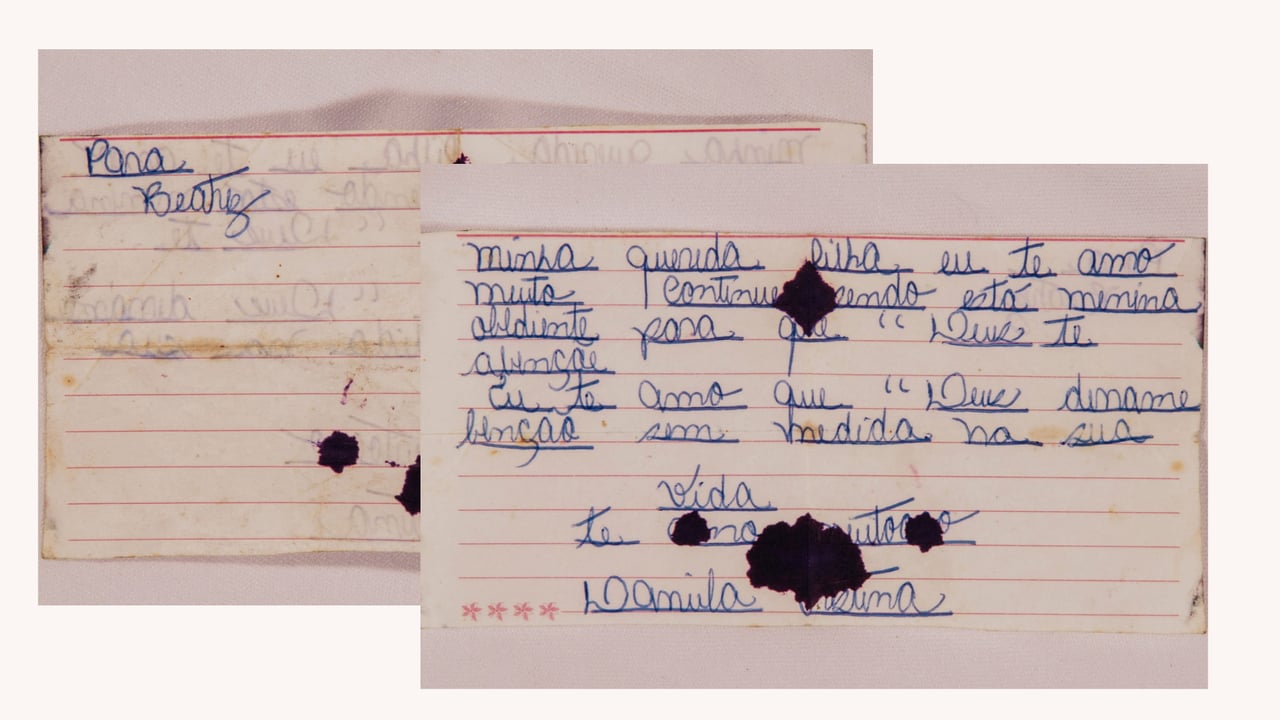 Para
Beatriz
minha querida filha eu te amo
muito Continue sendo esta menina
obediente para que “ Deus te
abençoe
Eu te amo que “ Deus derame
benção sem medida na sua
vida
te amo
Daniela